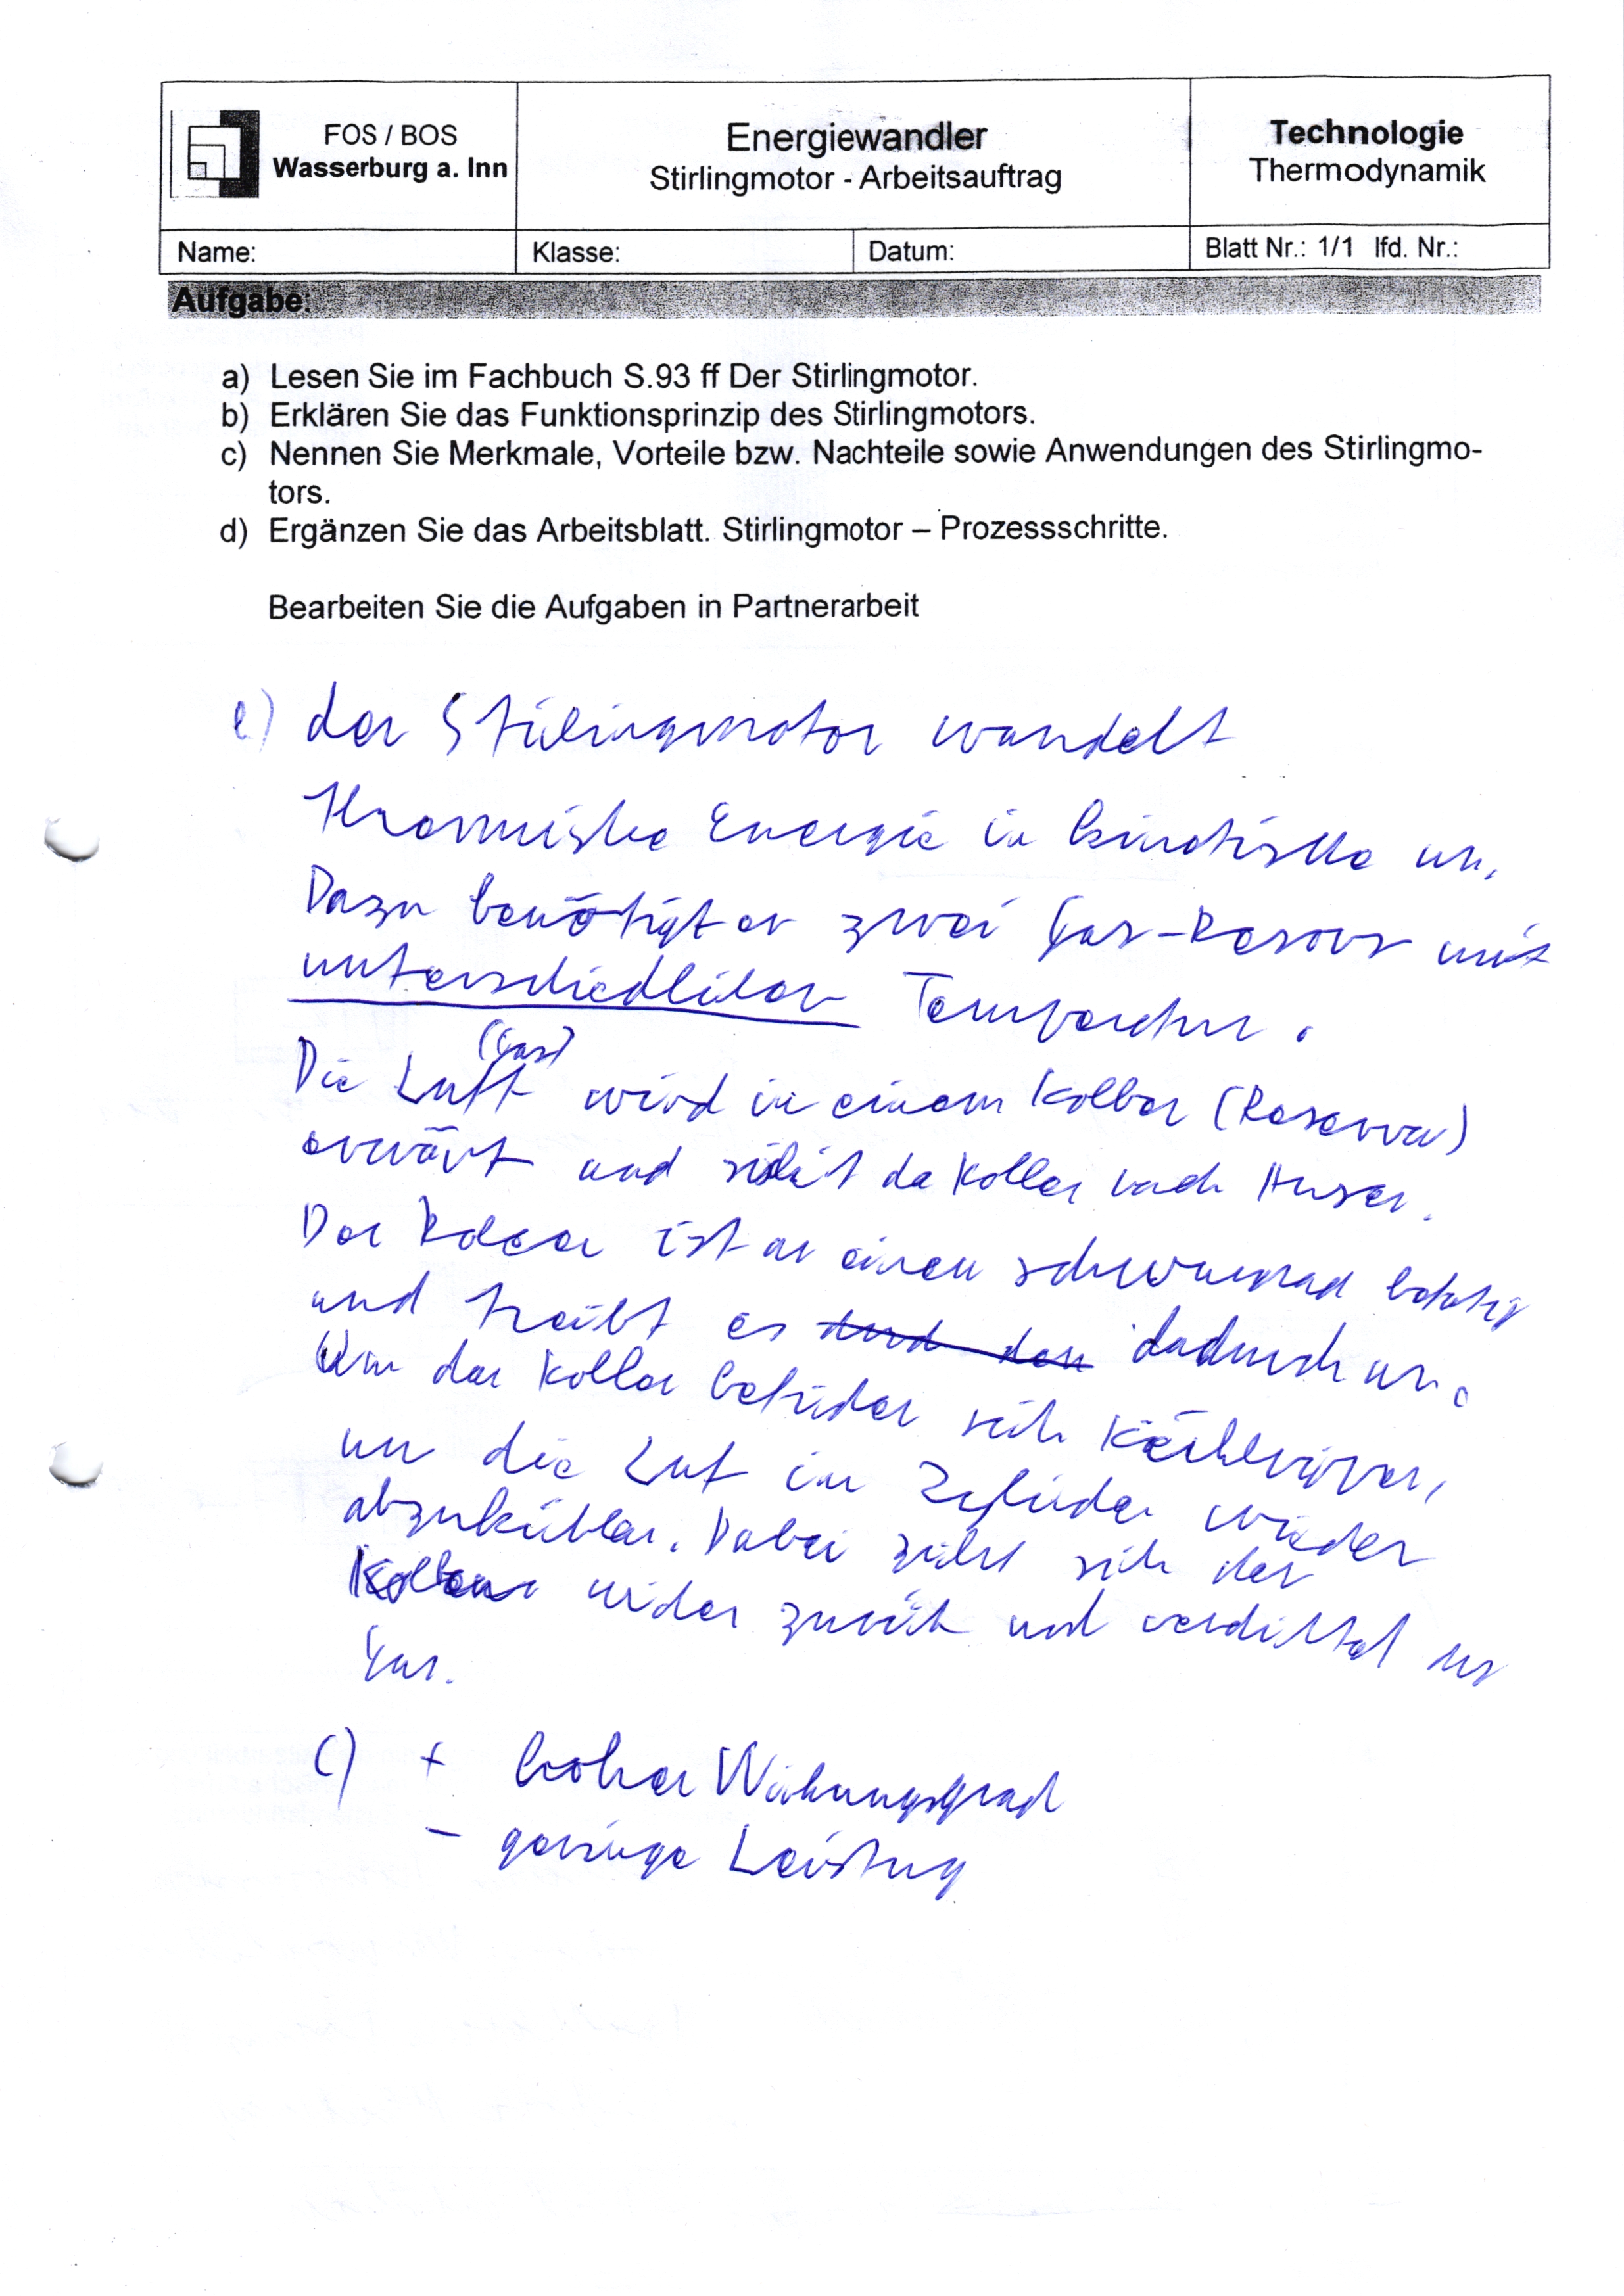 FOS / BOS
Wasserburg a. Inn
Energiewandler
Stirlingmotor - Arbeitsauftrag
Technologie
Thermodynamik
Name:
Klasse:
Datum:
Blatt Nr.: 1/1 lfd. Nr.:
Aufgabe:
a) Lesen Sie im Fachbuch S.93 ff Der Stirlingmotor.
b) Erklären Sie das Funktionsprinzip des Stirlingmotors.
c) Nennen Sie Merkmale, Vorteile bzw. Nachteile sowie Anwendungen des Stirlingmo-
tors.
d) Ergänzen Sie das Arbeitsblatt. Stirlingmotor – Prozessschritte.
Bearbeiten Sie die Aufgaben in Partnerarbeit
der Stirlingmotor wandelt
Thermische Energie in kinetische um.
Dazu benötigt er zwei Gas-Reserv mit
unterschiedlicher Temperatur.
(Gas)
Die Luft wird in einem Kolben (Reserva)
erwärt und der Kolben nach Ausen.
Der Kolben ist an einen schwungrad
und treibt es dadurch an.
Um den Kolben befinden sich Kühlrippen,
um die Luft im Zylinder wieder
abzukühlen. Dabei zieht sich der
Kolben wider zurück und verdichtet das
Gas.
c) + hoher Wirkungsgrad
- geringe Leistung